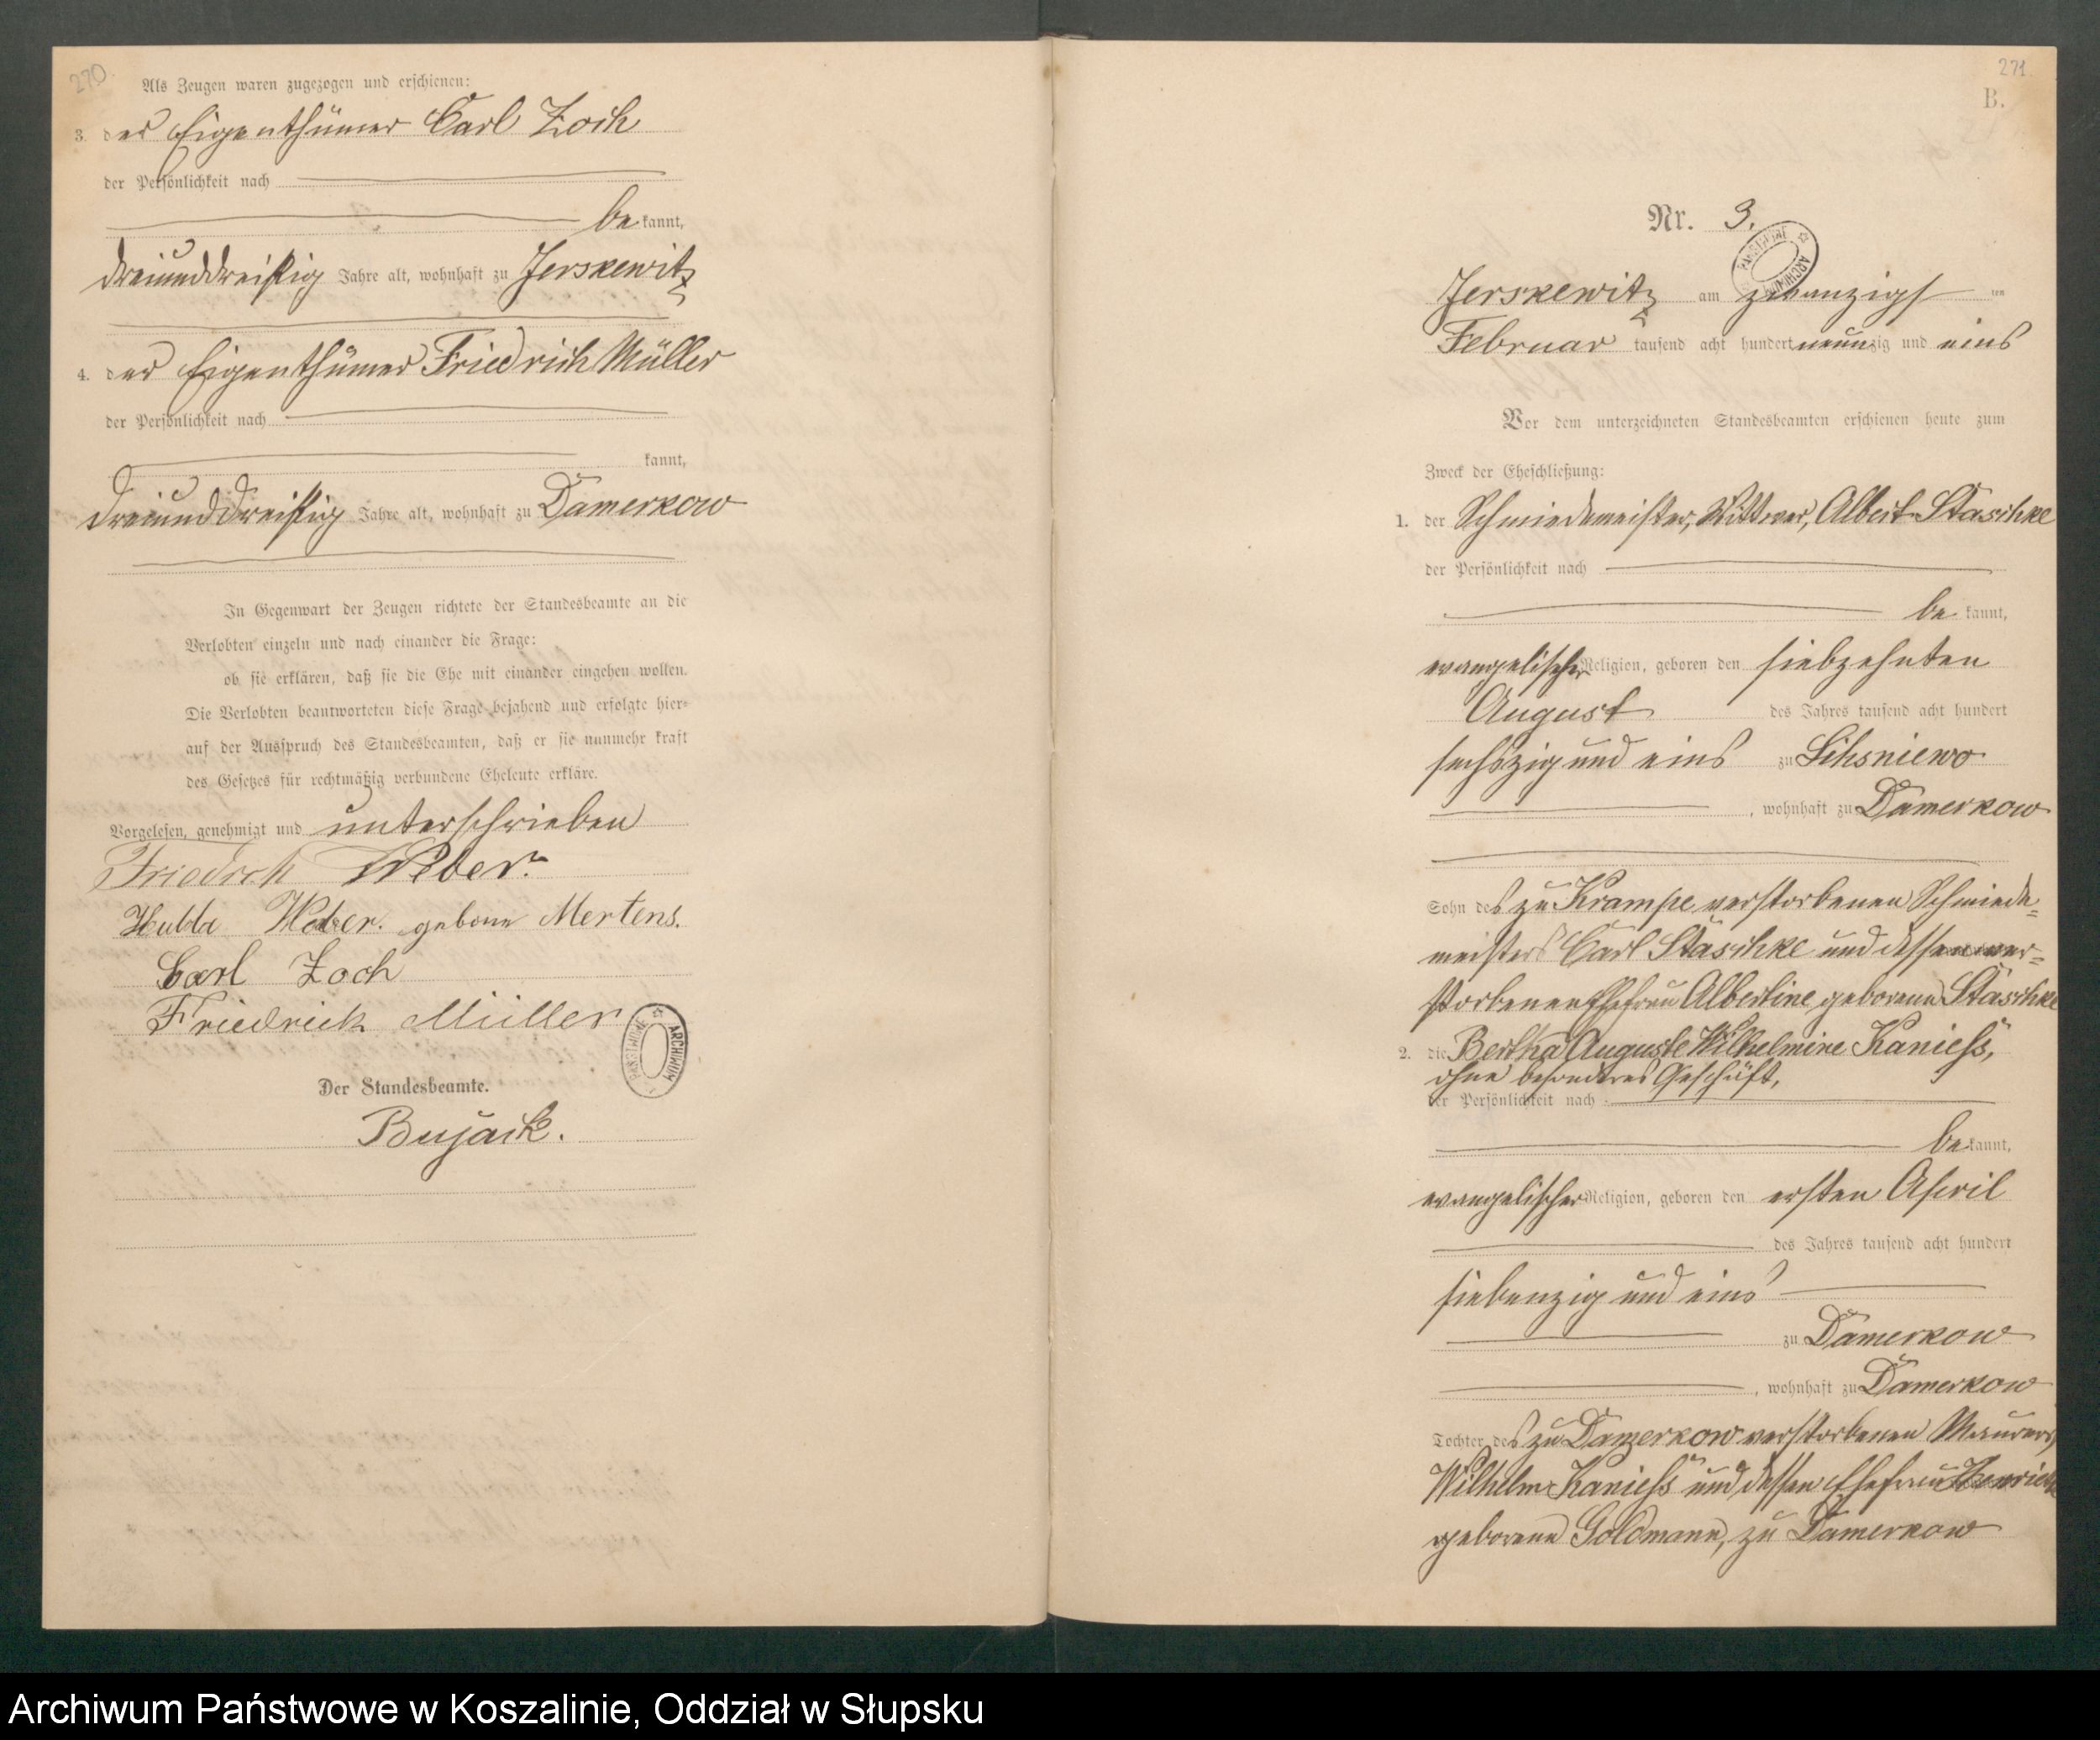 270.
Als Zeugen waren zugezogen und erschienen:
3. der Eigenthümer Carl Zoch
der Persönlichkeit nach
bekannt,
dreiunddreißig Jahre alt, wohnhaft zu Jerskewitz
4. der Eigenthümer Friedrich Müller
der Persönlichkeit nach
kannt,
dreiunddreißig Jahre alt, wohnhaft zu Damerkow
In Gegenwart der Zeugen richtete der Standesbeamte an die
Verlobten einzeln und nach einander die Frage:
ob sie erklären, daß sie die Ehe mit einander eingehen wollen.
Die Verlobten beantworteten diese Frage bejahend und erfolgte hier-
auf der Ausspruch des Standesbeamten, daß er sie nunmehr kraft
des Gesetzes für rechtmäßig verbundene Eheleute erkläre.
Vorgelesen, genehmigt und unterschrieben
Friedrich Weber.
Hulda Weber. geborne Mertens.
Carl Zoch
Friedrich Müller
ARCHIWUM PAŃSTWOWE
Der Standesbeamte.
Bujack.
271.
B.
Nr. 3.
ARCHIWUM PAŃSTWOWE
Jerskewitz am zwanzigsten
Februar tausend acht hundert neunzig und eins
Vor dem unterzeichneten Standesbeamten erschienen heute zum
Zweck der Eheschließung:
1. der Schmiedemeister, Wittwer, Albert Staschke
der Persönlichkeit nach
bekannt,
evangelischer Religion, geboren den siebzehnten
August des Jahres tausend acht hundert
sechszig und eins zu Lihsniewo
, wohnhaft zu Damerkow
Sohn des zu Krampe verstorbenen Schmiede-
meisters Carl Staschke und dessen ver-
storbenen Ehefrau Albertine geborene Staschke
2. die Bertha Auguste Wilhelmine Kanieß,
ohne besonderes Geschäft,
der Persönlichkeit nach
bekannt,
evangelischer Religion, geboren den ersten April
des Jahres tausend acht hundert
siebenzig und eins
zu Damerkow
, wohnhaft zu Damerkow
Tochter des zu Damerkow verstorbenen Maurers
Wilhelm Kanieß und dessen Ehefrau Henriette
geborene Goldmann, zu Damerkow
Archiwum Państwowe w Koszalinie, Oddział w Słupsku